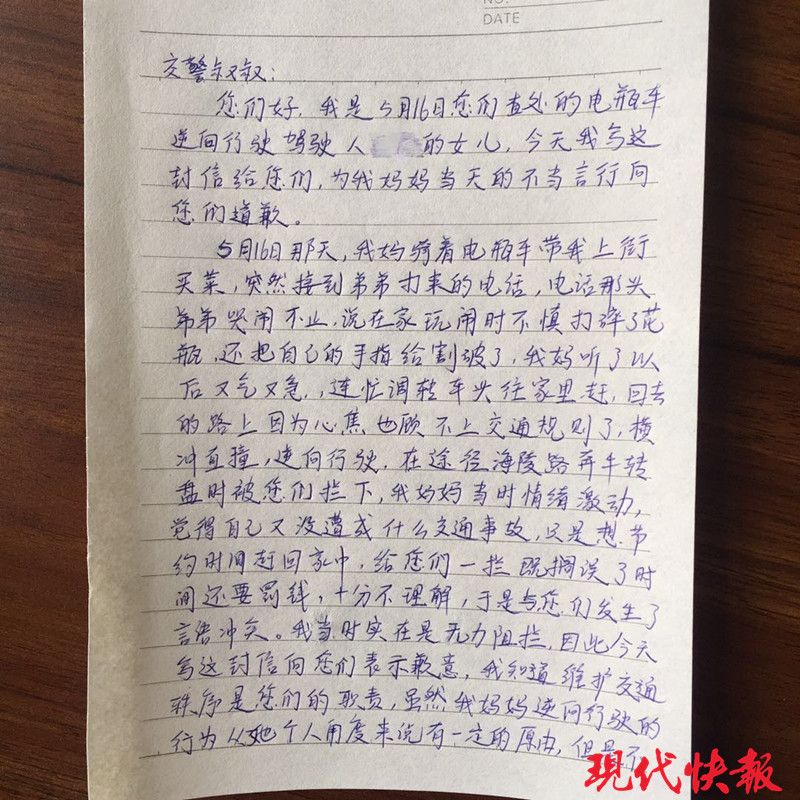 NO.
DATE
交警叔叔：
您们好，我是5月16日您们查处的电瓶车
逆向行驶驾驶人的女儿，今天我写这
封信给您们，为我妈妈当天的不当言行向
您们道歉。
5月16日那天，我妈骑着电瓶车带我上街
买菜，突然接到弟弟打来的电话，电话那头
弟弟哭闹不止，说在家玩闹时不慎打碎了花
瓶，还把自己的手指给割破了，我妈听了以
后又气又急，连忙调转车头往家里赶，回去
的路上因为心焦也顾不上交通规则了，横
冲直撞，逆向行驶，在途径海陵路奔牛转
盘时被您们拦下，我妈妈当时情绪激动，
觉得自己又没遭成什么交通事故，只是想节
约时间赶回家中，给您们一拦既搁误了时
间还要罚钱，十分不理解，于是与您们发生了
言语冲突。我当时实在是无力阻拦，因此今天
写这封信向您们表示歉意，我知道维护交通
秩序是您们的职责，虽然我妈妈逆向行驶的
行为从她个人角度来说有一定的原由，但是不
现代快報